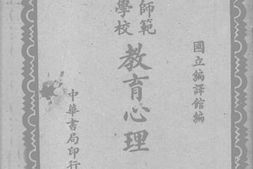 國立編譯館編
師範學校
教育心理
中華書局印行